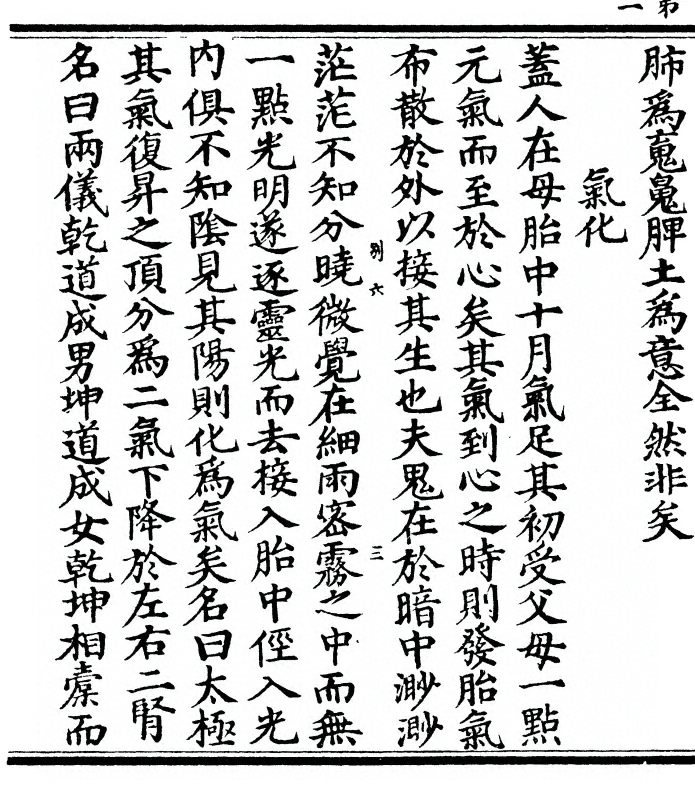 第一
肺為䰟魄脾土為意全然非矣
氣化
蓋人在母胎中十月氣足其初受父母一點
元氣而至於心矣其氣到心之時則發胎氣
布散於外以接其生也夫鬼在於暗中渺渺
別六
三
茫茫不知分曉微覺在細雨密霧之中而無
一點光明遂逐靈光而去接入胎中俓入光
內俱不知陰見其陽則化為氣矣名曰太極
其氣復昇之頂分為二氣下降於左右二腎
名曰兩儀乾道成男坤道成女乾坤相槖而